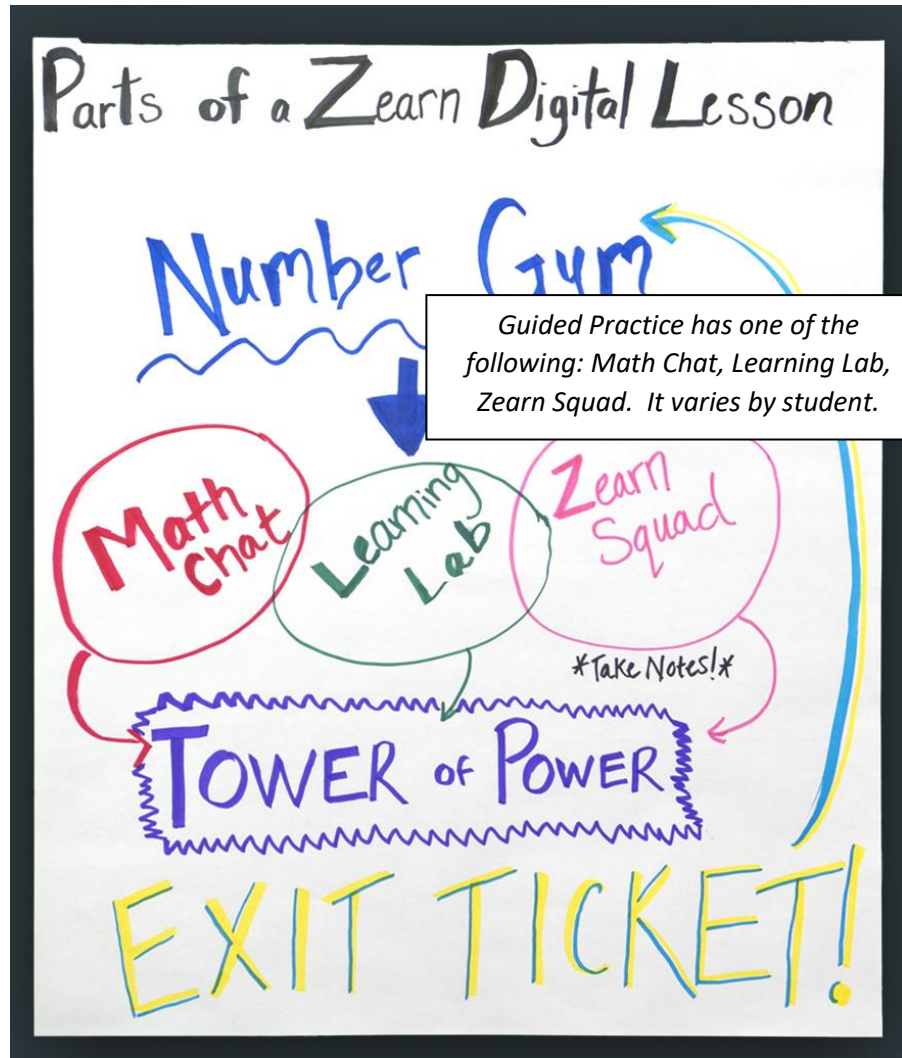 Parts of a Zearn Digital Lesson
Number Gym
Guided Practice has one of the
following: Math Chat, Learning Lab,
Zearn Squad. It varies by student.
Math
Chat
Learning
Lab
Zearn
Squad
*Take Notes!*
TOWER OF POWER
EXIT TICKET!